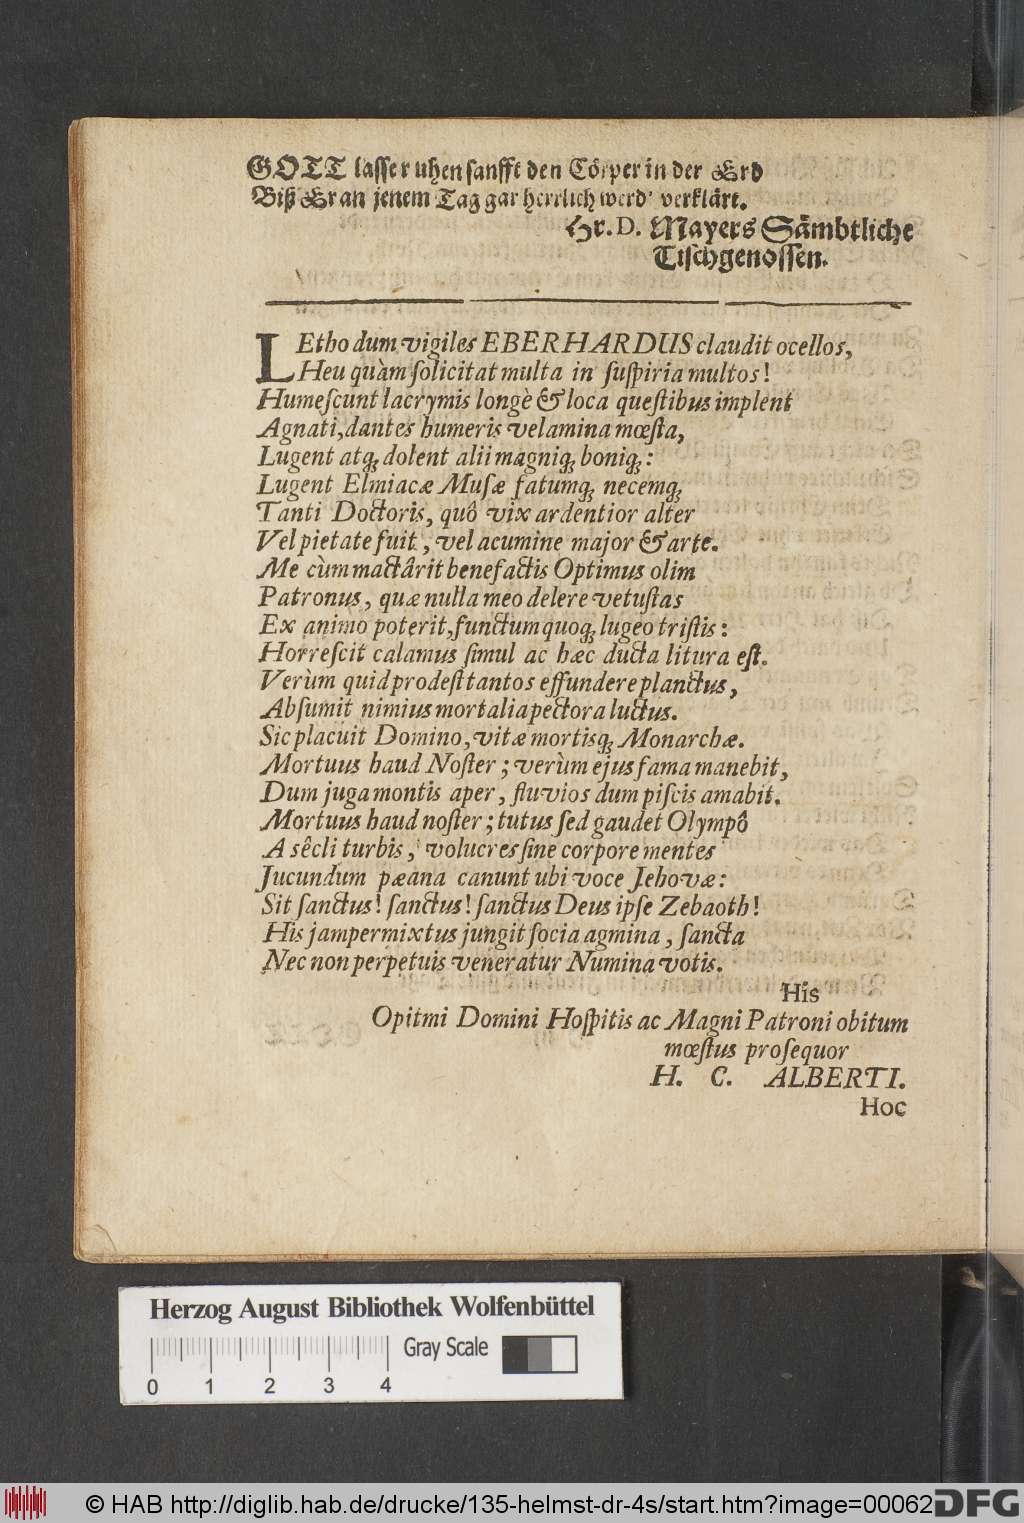 GOTT lasse ruhen sanfft den Cörper in der Erd
Biß Er an jenem Tag gar herrlich werd' verklärt.
Hr. D. Mayers Sämbtliche
Tischgenossen.
LEtho dum vigiles EBERHARDUS claudit ocellos,
Heu quàm ſolicitat multa in ſuſpiria multos!
Humeſcunt lacrymis longè & loca queſtibus implent
Agnati, dantes humeris velamina mœſta,
Lugent atq; dolent alii magniq; boniq;:
Lugent Elmiacæ Muſæ fatumq; necemq;
Tanti Doctoris, quô vix ardentior alter
Vel pietate fuit, vel acumine major & arte.
Me cùm mactârit benefactis Optimus olim
Patronus, quæ nulla meo delere vetuſtas
Ex animo poterit, functum quoq; lugeo triſtis:
Horreſcit calamus ſimul ac hæc ducta litura eſt.
Verùm quid prodeſt tantos effundere planctus,
Abſumit nimius mortalia pectora luctus.
Sic placuit Domino, vitæ mortisq; Monarchæ.
Mortuus haud Noſter; verùm ejus fama manebit,
Dum juga montis aper, fluvios dum piſcis amabit.
Mortuus haud noſter; tutus ſed gaudet Olympô
A sêcli turbis, volucres ſine corpore mentes
Jucundum pæana canunt ubi voce Jehovæ:
Sit ſanctus! ſanctus! ſanctus Deus ipſe Zebaoth!
His jam permixtus jungit ſocia agmina, ſancta
Nec non perpetuis veneratur Numina votis.
His
Opitmi Domini Hoſpitis ac Magni Patroni obitum
mœſtus proſequor
H. C. ALBERTI.
Hoc
Herzog August Bibliothek Wolfenbüttel
Gray Scale
0 1 2 3 4
© HAB http://diglib.hab.de/drucke/135-helmst-dr-4s/start.htm?image=00062
DFG